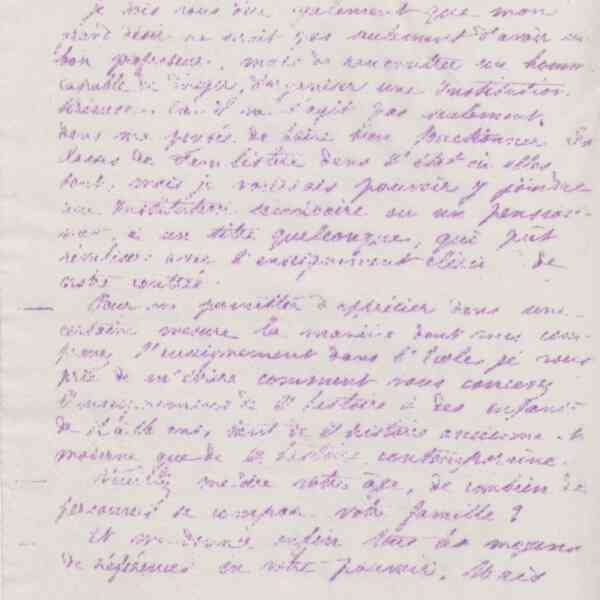 Je dois vous dire également que mon
désir ne serait pas seulement d'avoir un
bon professeur, mais de rencontrer un homme
capable de diriger, d'organiser une Institution
sérieuse. Car il ne s'agit pas seulement,
dans ma pensée de faire bien fonctionner les
dans l'état où elles
sont, mais je voudrais pouvoir y joindre
une Institution secondaire ou un pension-
nat, à un titre quelconque, qui pût
rivaliser avec l'enseignement de
notre contrée.
Pour me permettre d'apprécier dans une
certaine mesure la manière dont vous com-
prenez l'enseignement dans l'Ecole, je vous
prie de m'écrire comment vous concevez
l'enseignement de l'histoire à des enfants
de ans, tant de l'histoire ancienne et
moderne que de l'histoire contemporaine.
Veuillez me dire votre âge, de combien de
personnes se compose votre famille ?
Et me donner enfin tous les moyens
de références en votre pouvoir. Mais